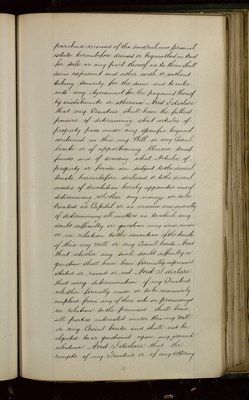 purchase monies of the residential and personal
estate hereinbefore devised or bequeathed in trust
for sale or any part thereof as to them shall
seem expedient and either with or without
taking security for the same and to enter
into any Agreement for the payment thereof
by instalments or otherwise And I declare
that my Trustees shall have the fullest
powers of determining what articles of
property pass under any specific bequest
contained in this my Will or any Codicil
hereto or of apportioning blended trust
funds and of deciding what Articles of
property or funds are subject to the several
Trusts hereinbefore declared or to the several
modes of devolution hereby appointed and of
determining whether any moneys are to be
treated as Capital or as income and generally
of determining all matters as to which any
doubt difficulty or question may arise under
or in relation to the execution of the trusts
of this my Will or any Codicil hereto And
that whether any such doubt difficulty or
question shall have been formally expressed
stated or raised or not And I declare
that every determination of my Trustees
whether formally made or to be reasonably
implied from any of their acts or proceedings
in relation to the premises shall bind
all parties interested under this my Will
or any Codicil hereto and shall not be
objected to or questioned upon any ground
whatever And I declare that the
receipts of my Trustees or of any